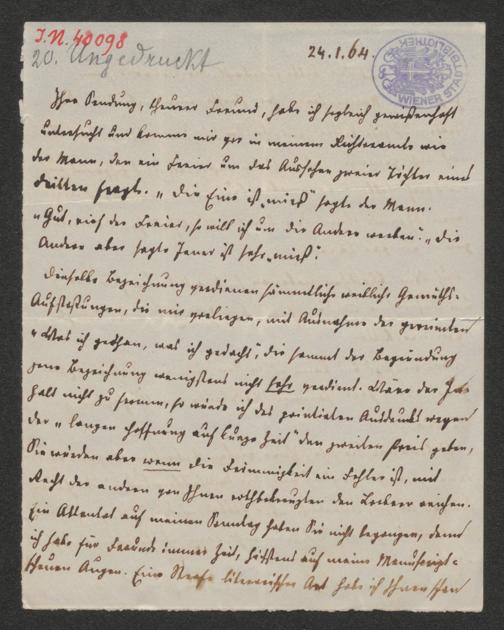 I.N. 48098
20. Ungedruckt
24.1.64.
WIENER STADTBIBLIOTHEK
Ihre Sendung, theurer Freund, habe ich sogleich gewissenhaft
untersucht und komme mir vor in meinem Richteramte wie
der Mann, den ein Freier um das Aussehen zweier Töchter eines
Dritten fragt. „Die Eine ist mies" sagte der Mann.
„Gut, rief der Freier, so will ich um die Andere werben." „Die
Andere aber sagte Jener ist sehr mies".
Dieselbe Bezeichnung verdienen sämmtliche weibliche Gemüths-
die mir vorliegen, mit Ausnahme der gereimten
„Was ich gethan, was ich gedacht", die sammt der Begründung
jene Bezeichnung wenigstens nicht sehr verdient. Wäre der In-
halt nicht zu fromm, so würde ich des Ausdrucks wegen
der „langen Hoffnung auf kurze Zeit" den zweiten Preis geben,
Sie würden aber wenn die Frömmigkeit ein Fehler ist, mit
Recht der andern von Ihnen den Lorbeer reichen.
Ein Attentat auf meinen Sonntag haben Sie nicht begangen, denn
ich habe für Freunde immer Zeit, höchstens auf meine Manuscript-
scheuen Augen. Eine Strafe literarischer Art habe ich Ihnen schon